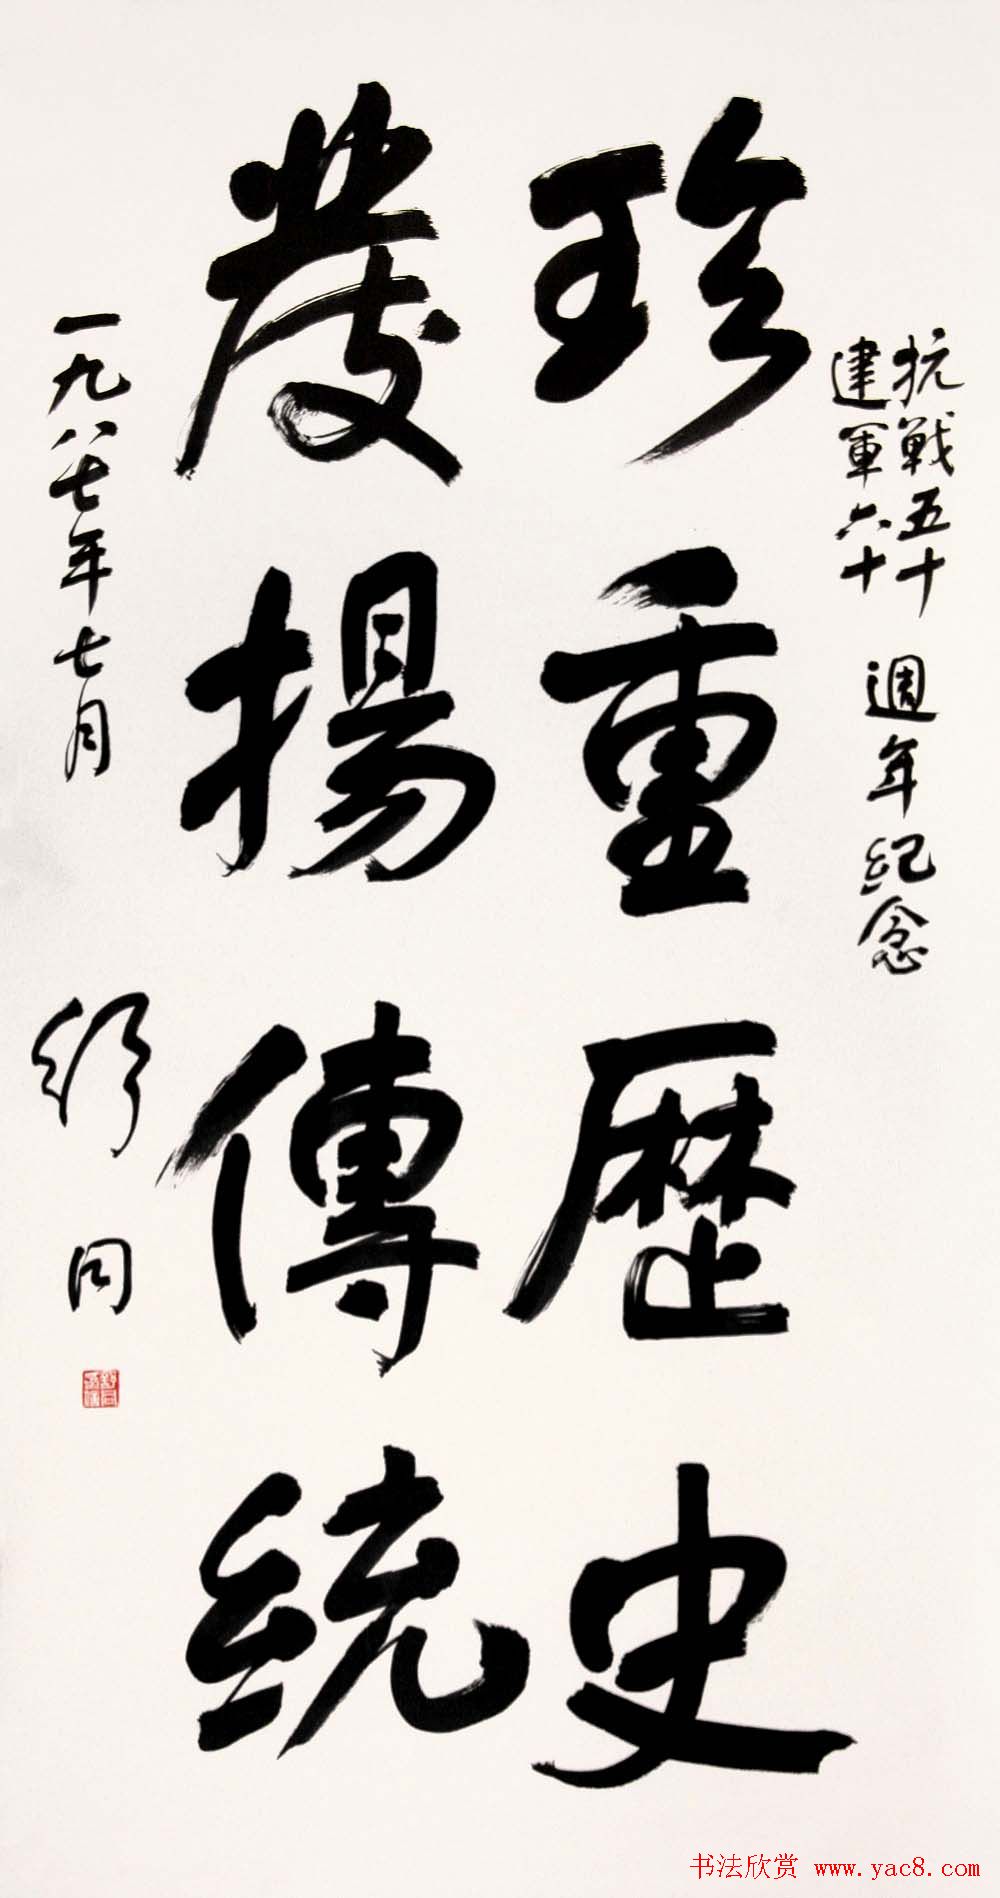 抗戰五十
建軍六十
週年紀念
珍重歷史
發揚傳統
一九八七年七月
舒同
书法欣赏 www.yac8.com